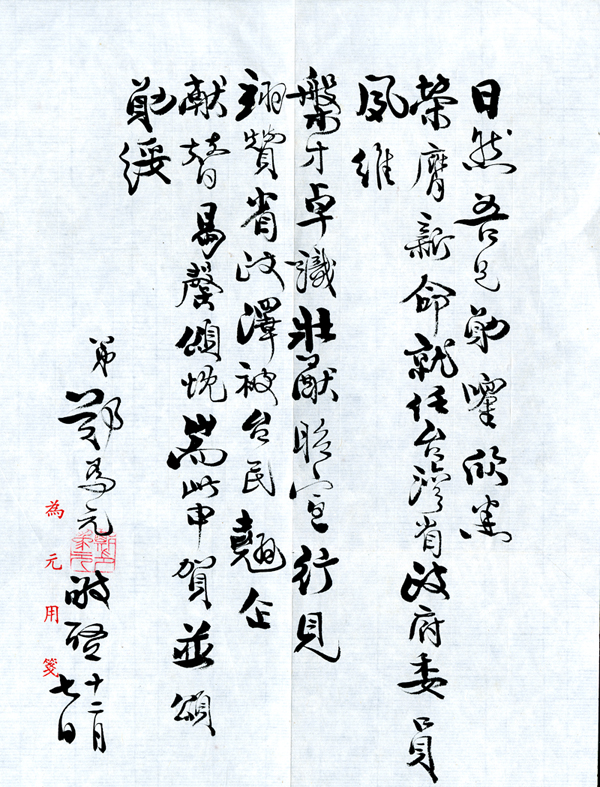 日然吾兄勛鑒欣悉
榮膺新命就任台灣省政府委員
夙維
槃才卓識壯猷昭宣行見
翊贊省政澤被台民翹企
猷替曷罄頌忱耑此申賀並頌
勛綏
弟鄭為元敬啓十二月七日
為元用箋